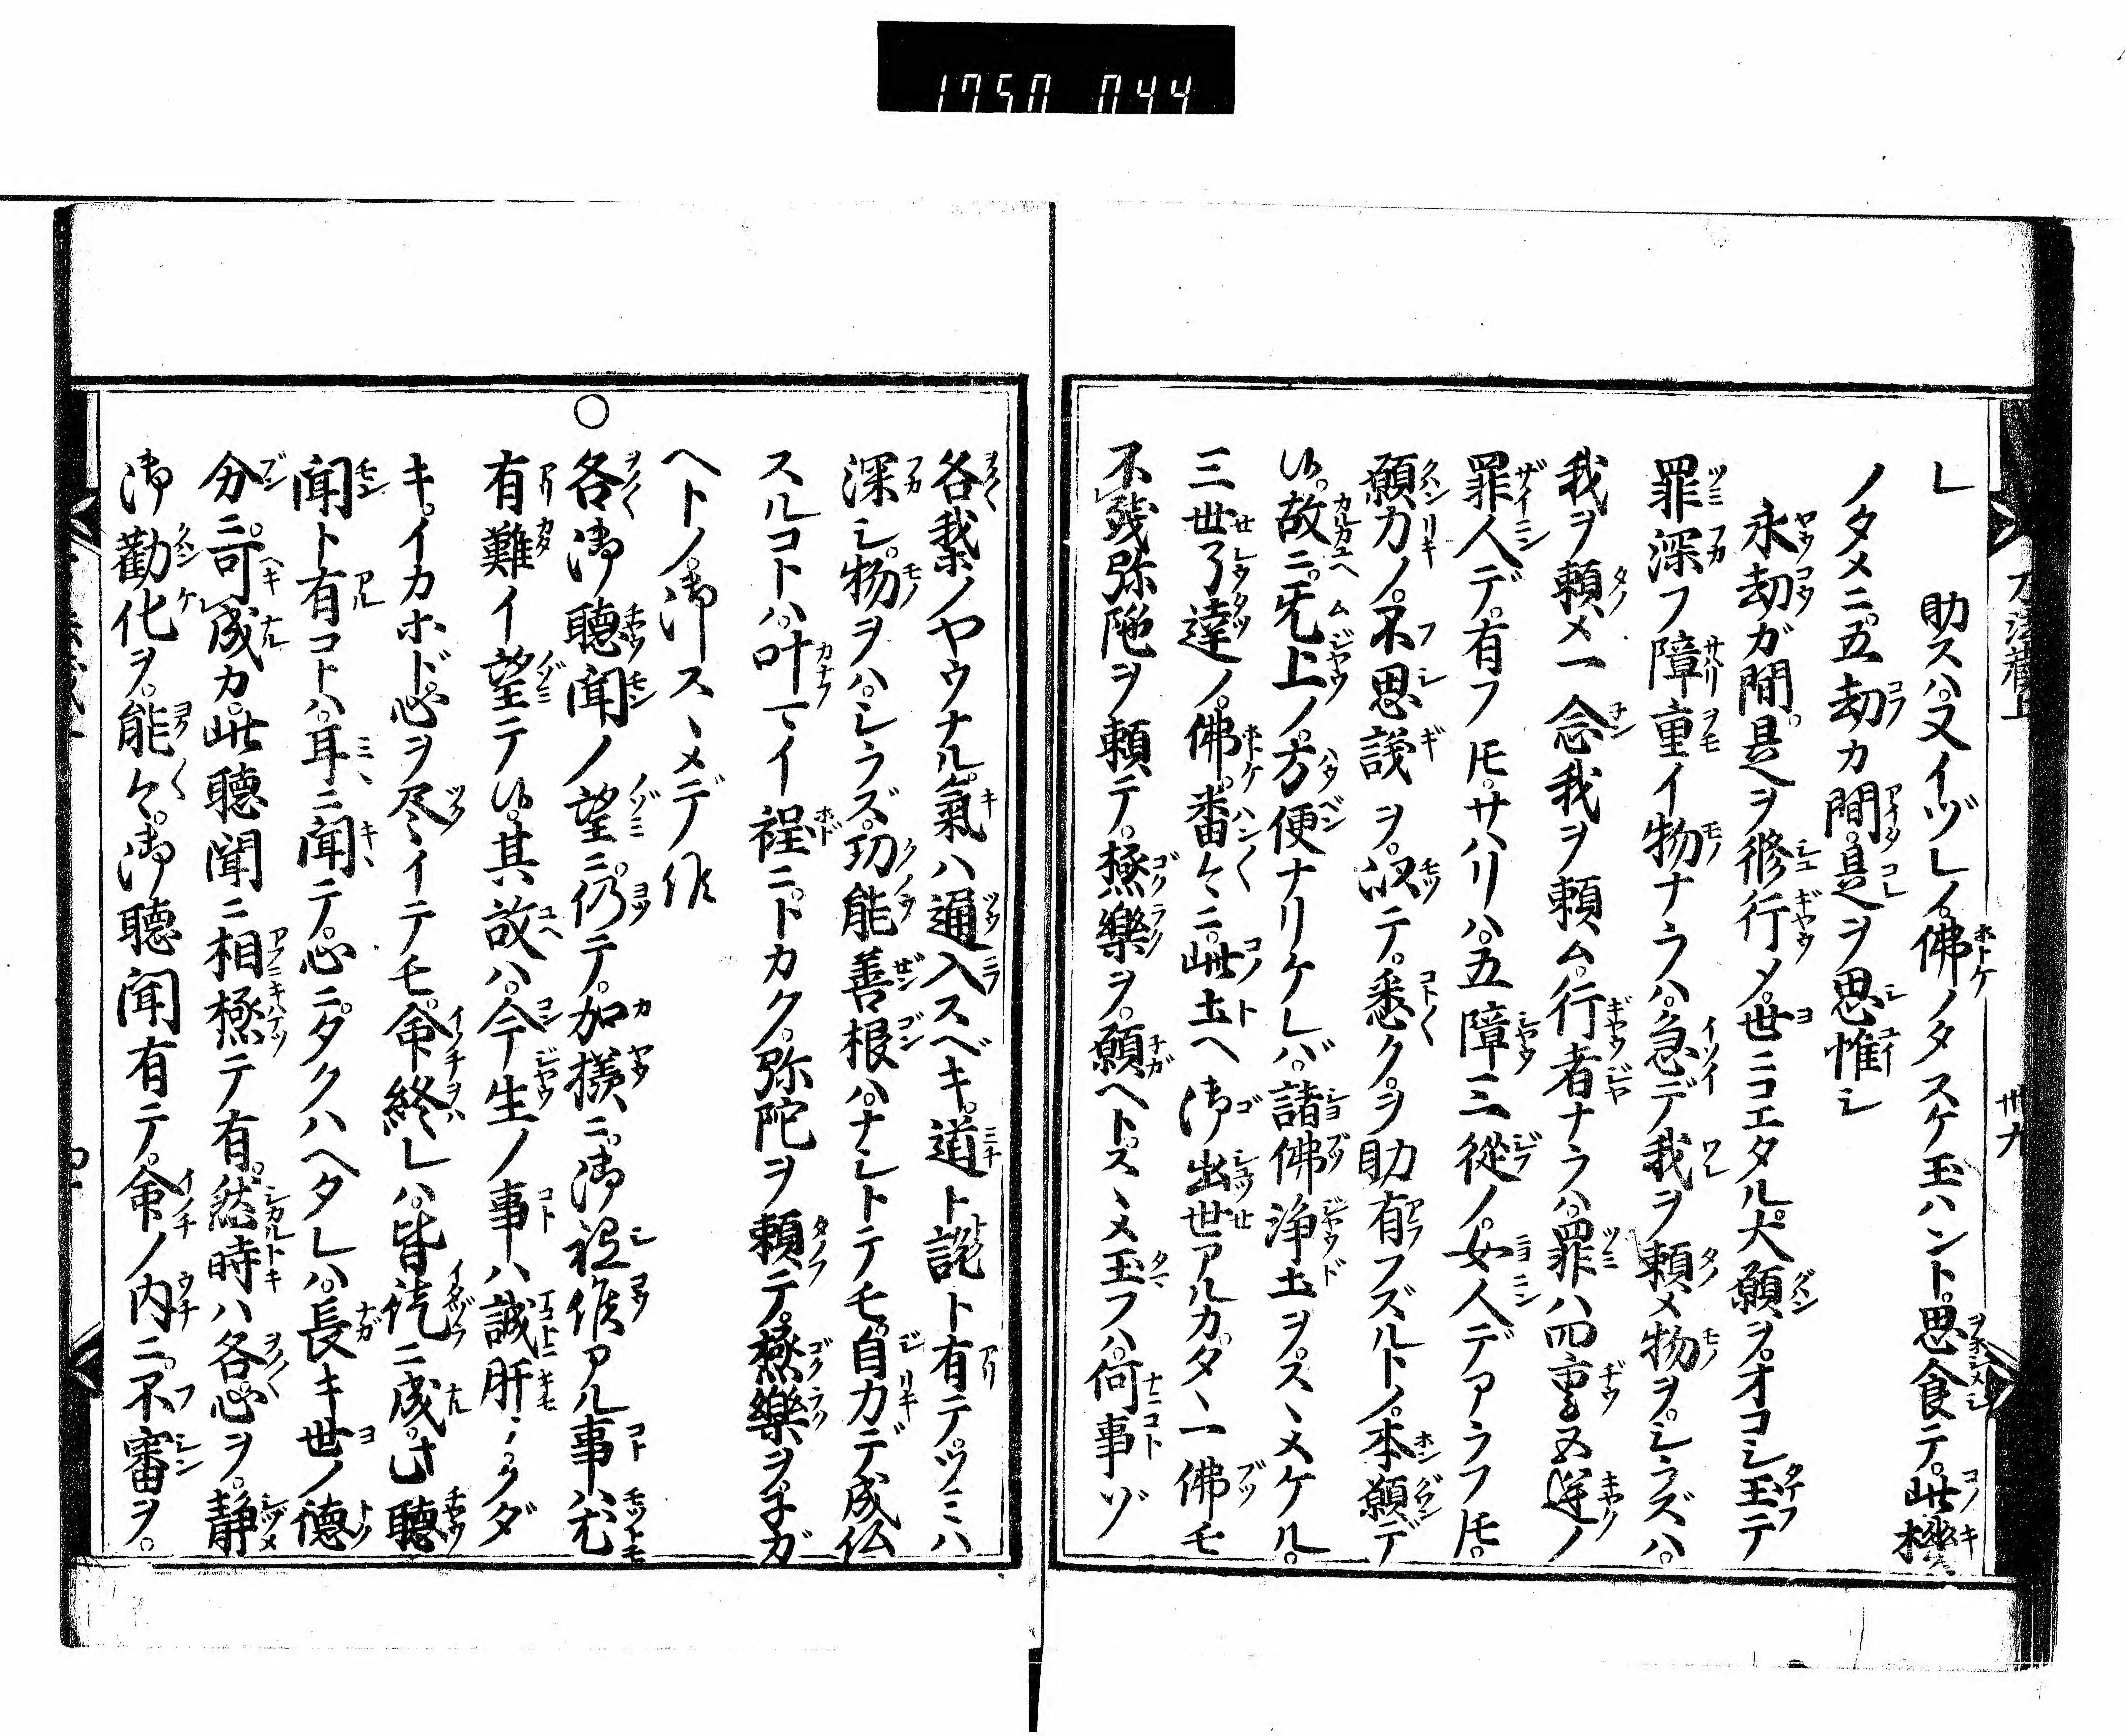 1750 044
助スハ又イヅレノ。佛ノタスケ玉ハント。思食テ。此機
ノタメニ。五劫カ間。是ヲ思惟シ
永劫ガ間。是ヲ修行メ。世ニコエタル。大願ヲ。オコシ玉テ
罪深フ障重イ物ナラハ。急デ我ヲ頼メ物ヲ。シラズハ。
我ヲ頼メ一念我ヲ頼ム。行者ナラハ。罪ハ四重五逆ノ
罪人デ。有フ𪜈。サハリハ。五障三從ノ。女人デアラフ𪜈。
願力ノ。不思議ヲ。以テ。悉ク。ヲ助有フズルトノ。本願デ
候。故ニ。无上ノ。方便ナリケレバ。諸佛浄土ヲ。スヽメケル。
三世了達ノ。佛。番々ニ。此土ヘ御出世アルカ。タヽ一佛モ
不残弥陀ヲ頼テ。極樂ヲ。願ヘト。スヽメ玉フハ。何事ゾ
各我ノヤウナル。氣ハ通入スベキ。道ト説ト有テ。ツミハ
深シ。物ヲハ。シラズ。功能善根ハ。ナシトテモ。自力デ成仏
スルコトハ。叶マイ程ニ。トカク。弥陀ヲ頼テ。極樂ヲ。子ガ
ヘトノ。御スヽメデ候
○各御聽聞ノ望ニ。仍テ。加様ニ。御祗候アル事ハ。尤
有難イ望テ候。其故ハ。今生ノ事ハ誠肝ヽ。クダ
キ。イカホド。心ヲ尽イテモ。命終レハ。皆徒ニ成。此聽
聞ト有コトハ。耳ニ聞テ。心ニ。タクハヘタレハ。長キ世ノ徳
分ニ。可成カ。此聽聞ニ相極テ有。然時ハ各心ヲ。静
御勸化ヲ。能々。御聽聞有テ。命ノ内ニ。不審ヲ。